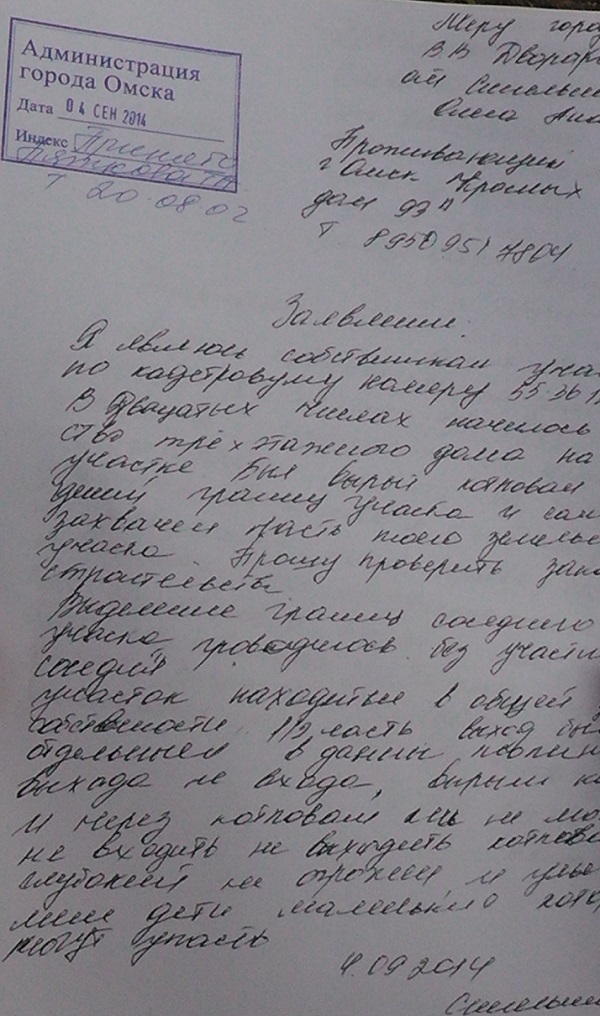 Администрация
города Омска
Дата 04 СЕН 2014
Индекс Принято
т 20-08-02
Меру горо
В.В Двораk
от Синельни
Проживающий
г Омск
дом 99"
т 8950 951 7804
Заявление
Я являюсь собственикам учас
по кадстровуму намеру 55-36 1
В двацатых числах началось
ство трёх этажного дома на
участке был вырыт котлован
границ учаска и сам
захвачен часть моего земель
учаска Прошу проверить зако
строительств
Выделение границ соседнего
учаска проводилось без участи
соседий
участок находиться в общей
обственности 1/2 часть выход бы
отдельный в данны
выхода не входа, вырыли ко
и через котлован мы не мо
не входить не выходить котлован
глубокий не огрожен и
меня дети маленькие кото
могут упасть
4.09 2014
Синельни